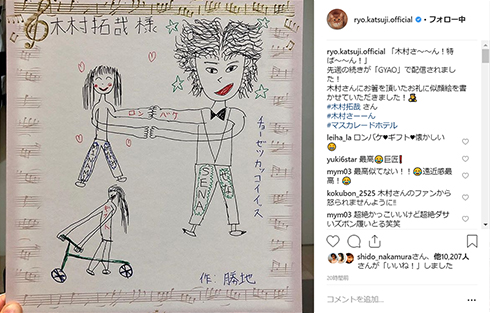 木村拓哉 様
ロン バケ
チョーゼツカッコイイッス
SENA
作: 勝地
ryo.katsuji.official ・フォロー中
ryo.katsuji.official 「木村さ〜〜ん!特
ば〜〜ん!」
先週の続きが「GYAO」で配信されま
した!
木村さんにお箸を頂いたお礼に似顔絵を書
かせていただきました!
#木村拓哉 さん
#木村さーーん
#マスカレードホテル
leiha_la ロンバケ♥ギフト♥懐かしい
yuki6star 最高 巨匠
mym03 最高似てない!! 遠近感最
高!
kokubon_2525 木村さんのファンから
怒られませんように!!
mym03 超絶かっこいいけど超絶ダサ
いズボン履いとる笑笑
shido_nakamuraさん、他10,207人
さんが「いいね!」しました
20時間前
コメントを追加...